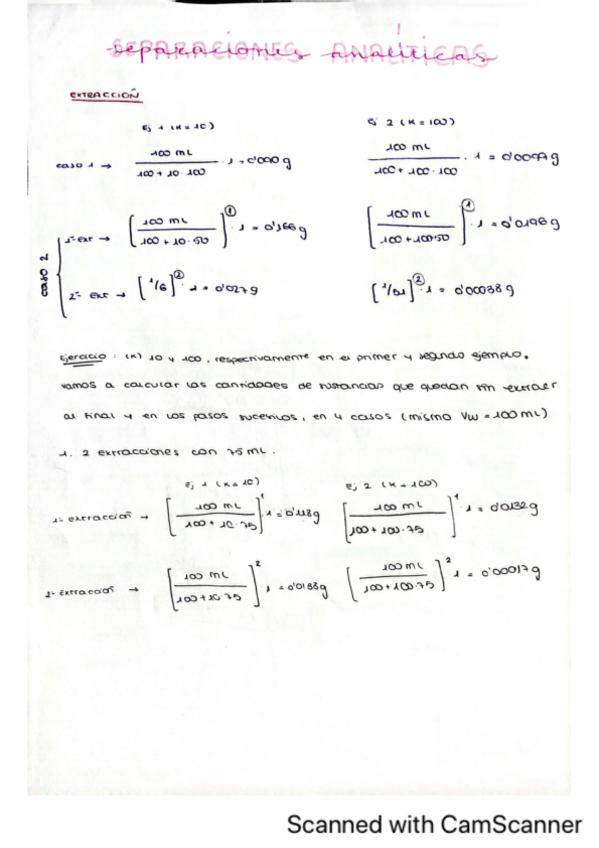 SEPARACIONES ANALÍTICAS
separaciones analíticas
EXTRACCIÓN
Ej 1 (K = 10)
Ej 2 (K = 100)
caso 1 → 100 mL / 100 + 10 · 100 · 1 = 0'090 g
100 mL / 100 + 100 · 100 · 1 = 0'0099 g
caso 2
1ª ext → [100 mL / 100 + 10 · 50]^① · 1 = 0'166 g
[100 mL / 100 + 100·50]^① · 1 = 0'0196 g
2ª ext → [1/6]^② · 1 = 0'027 g
[1/51]^② · 1 = 0'00038 g
Ejercicio : (K) 10 y 100, respectivamente en el primer y segundo ejemplo.
vamos a calcular las cantidades de sustancias que quedan sin extraer
al final y en los pasos sucesivos, en 4 casos (mismo Vw = 100 mL)
1. 2 extracciones con 75 mL.
Ej 1 (K = 10)
Ej 2 (K = 100)
1ª extracción → [100 mL / 100 + 10·75]^1 · 1 = 0'118 g
[100 mL / 100 + 100·75]^1 · 1 = 0'0132 g
2ª extracción → [100 mL / 100 + 10·75]^2 · 1 = 0'0138 g
[100 mL / 100 + 100·75]^2 · 1 = 0'00017 g
Scanned with CamScanner